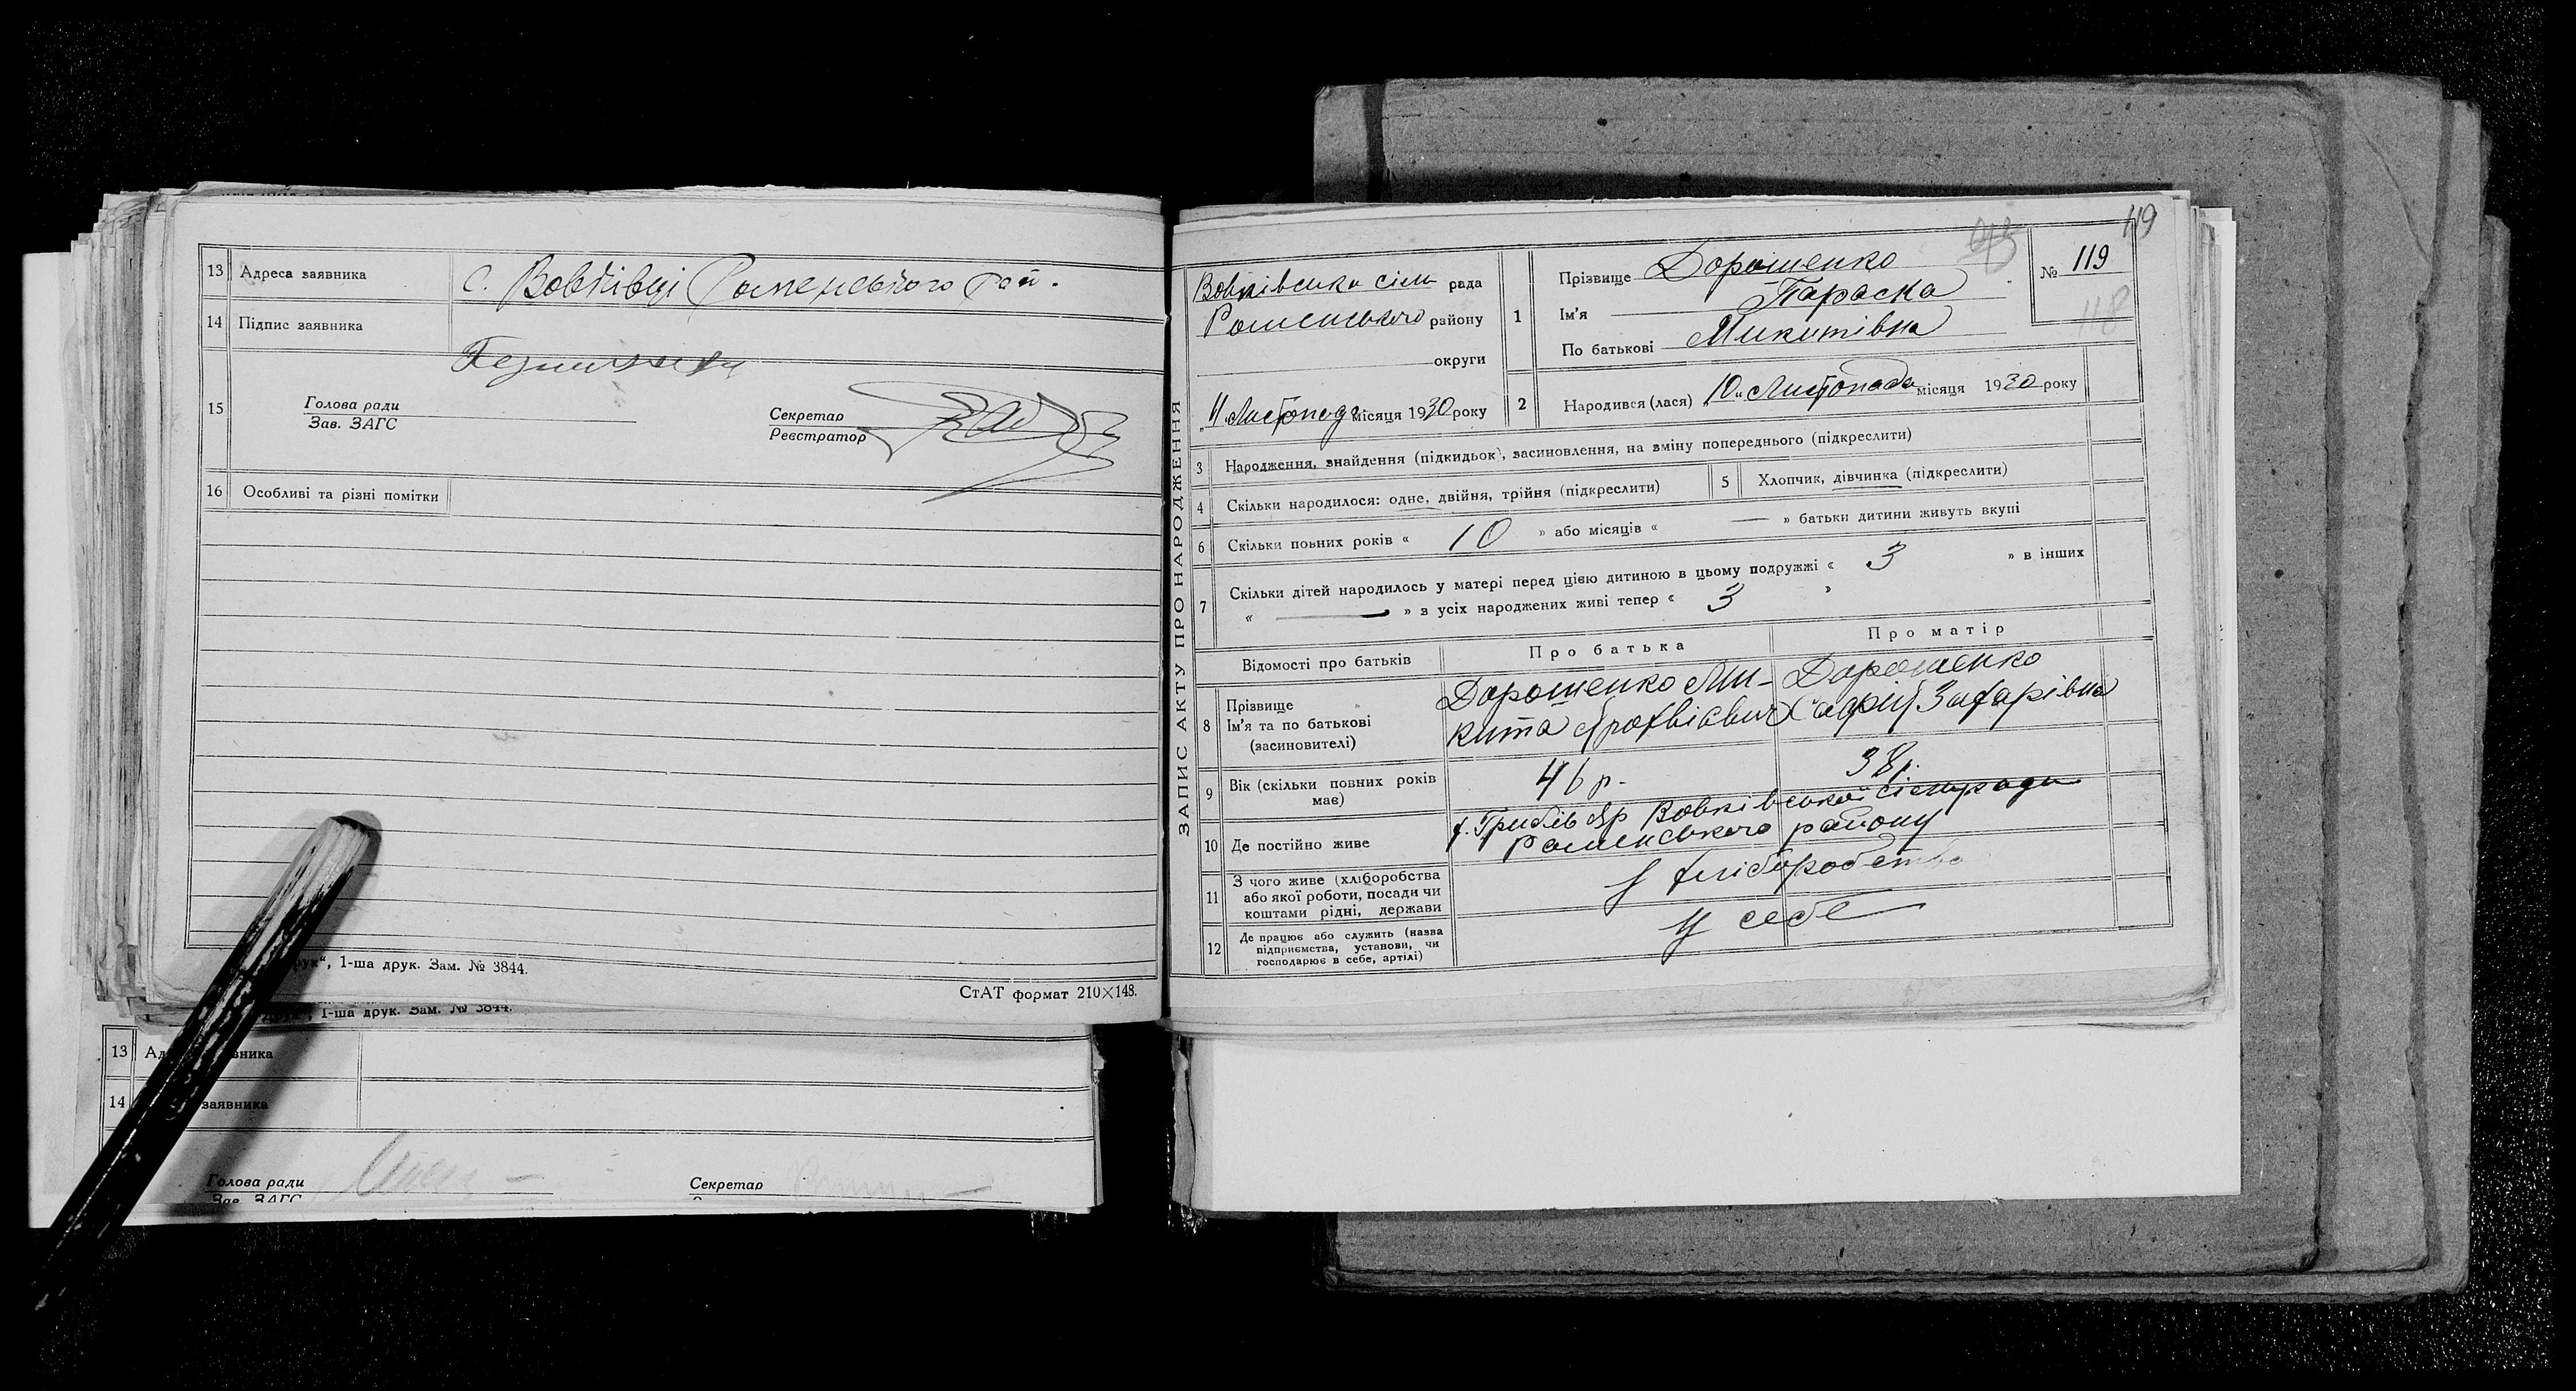 13 Адреса заявника с. Вовківці Роменського рай.
14 Підпис заявника
15 Голова ради
Зав. ЗАГС
Секретар
Реєстратор
16 Особливі та різні помітки
1-ша друк. Зам. № 3844.
СтАТ формат 210×148.
1-ша друк. Зам. № 3844.
13
14 заявника
Голова ради
Зав. ЗАГС
Секретар
ЗАПИС АКТУ ПРО НАРОДЖЕННЯ
119
№ 119
118
Вовківська сіль рада
Роменського району
округи
„11 Листопада місяця 1930 року
1 Прізвище Дорошенко
Ім'я Параска
По батькові Микитівна
2 Народився (лася) „10„ Листопада місяця 1930 року
3 Народження, знайдення (підкидьок), васиновлення, на вміну попереднього (підкреслити)
4 Скільки народилося: одне, двійня, трійня (підкреслити)
5 Хлопчик, дівчинка (підкреслити)
6 Скільки повних років « 10 » або місяців « — » батьки дитини живуть вкупі
7 Скільки дітей народилось у матері перед цією дитиною в цьому подружжі « 3 » в інших
« — » з усіх народжених живі тепер « 3 »
Відомості про батьків Про батька Про матір
8 Прізвище
Ім'я та по батькові
(засиновителі)
Дорошенко Ми-
кита
Дорошенко
Захарівна
9 Вік (скільки повних років
має)
46 р. 38 р.
10 Де постійно живе
х. Грибів Яр Вовківської сільради
Роменського району
11 З чого живе (хліборобства
або якої роботи, посади чи
коштами рідні, держави
З хліборобства
12 Де працює або служить (назва
підприємства, установи, чи
господарює в себе, артілі)
У себе